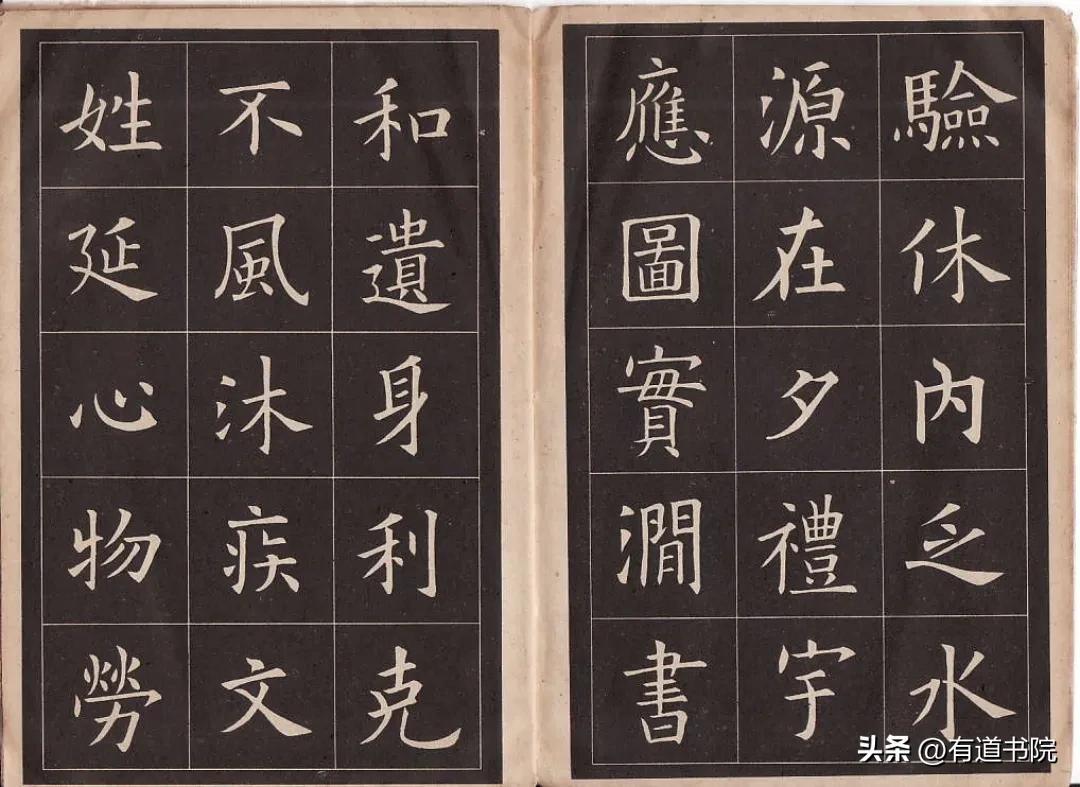 驗休内乏水
源在夕禮宇
應圖實澗書
和遺身利克
不風沐疾文
姓延心物勞
头条 @有道书院